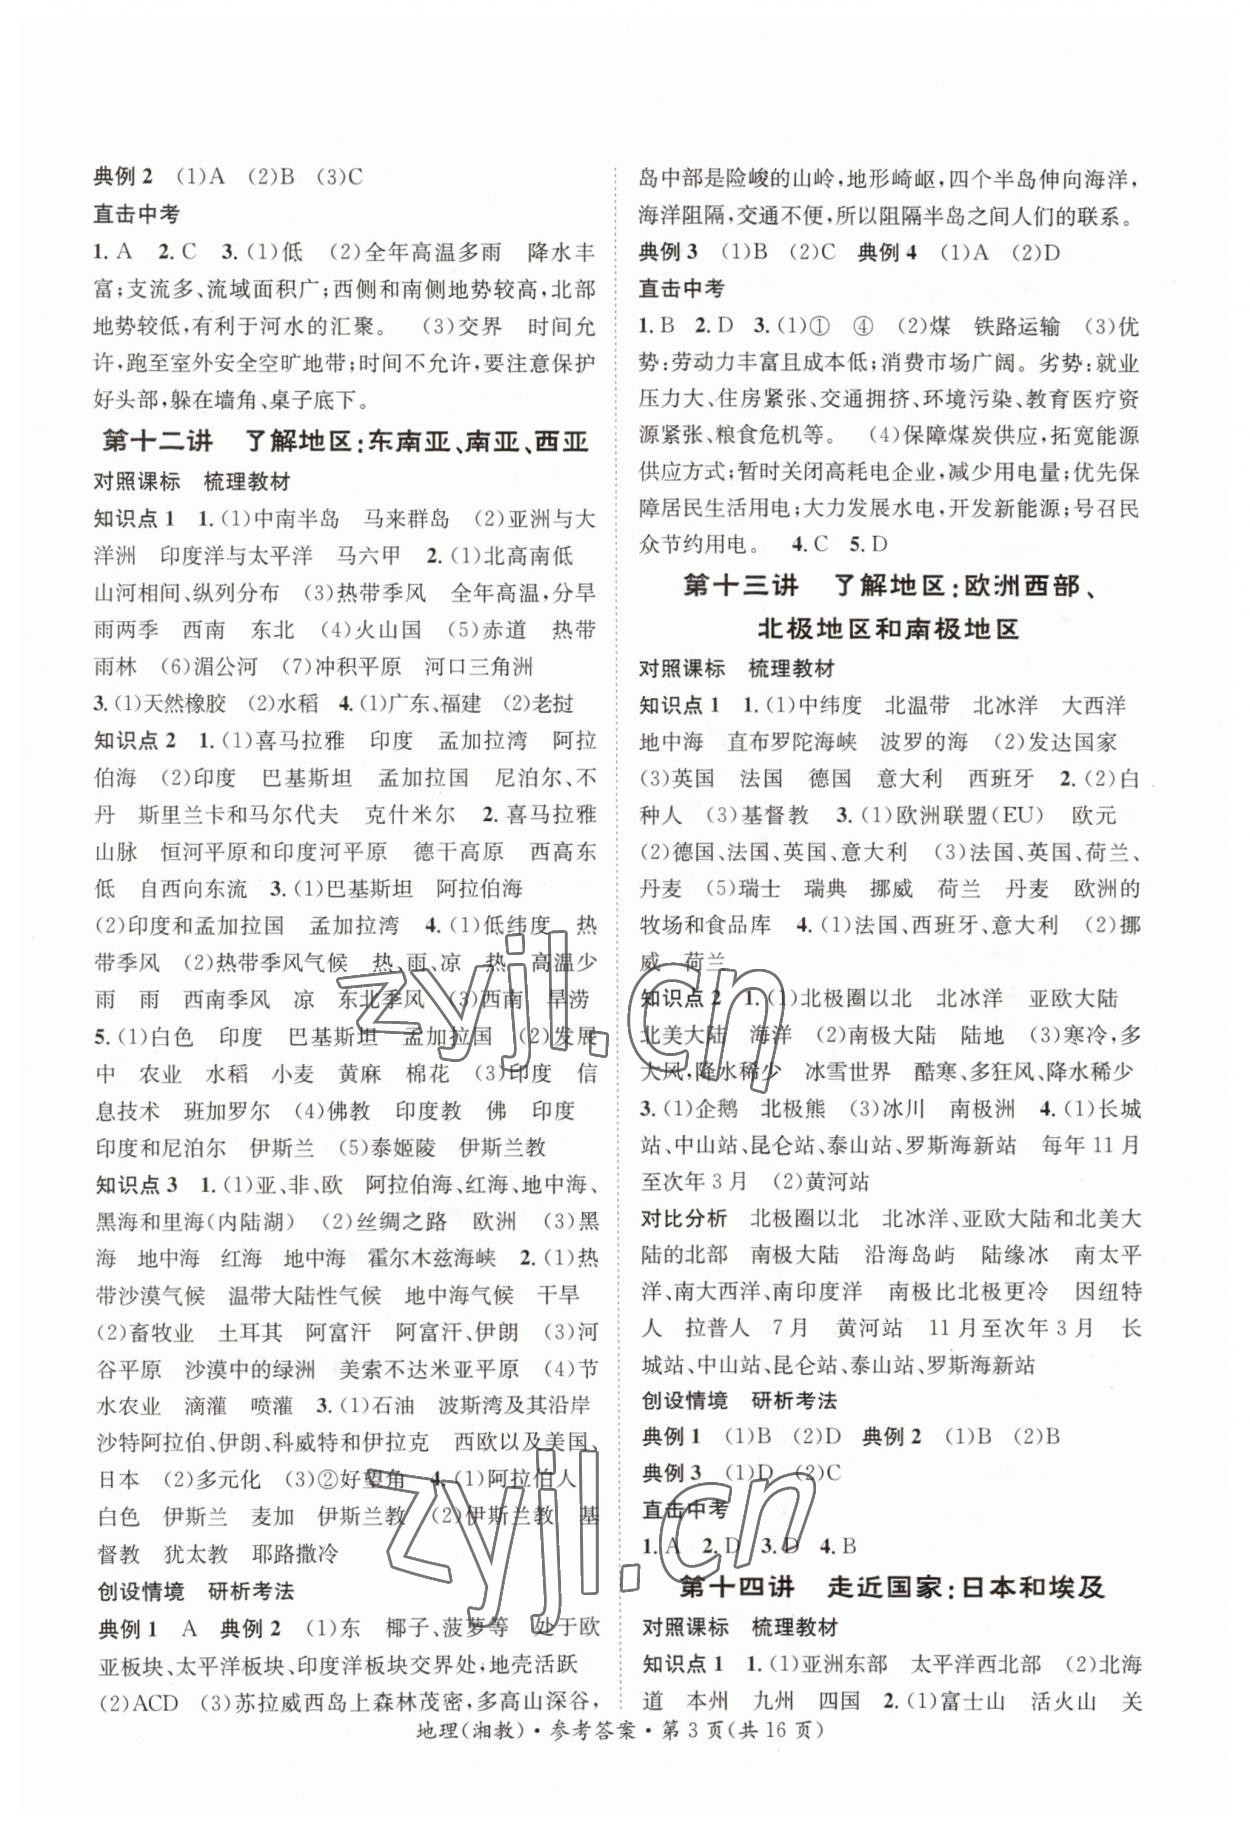 典例 2　(1)A　(2)B　(3)C
直击中考
1. A　2. C　3. (1)低　(2)全年高温多雨　降水丰
富;支流多、流域面积广;西侧和南侧地势较高,北部
地势较低,有利于河水的汇聚。　(3)交界　时间允
许,跑至室外安全空旷地带;时间不允许,要注意保护
好头部,躲在墙角、桌子底下。
第十二讲　了解地区:东南亚、南亚、西亚
对照课标　梳理教材
知识点 1　1. (1)中南半岛　马来群岛　(2)亚洲与大
洋洲　印度洋与太平洋　马六甲　2. (1)北高南低
山河相间、纵列分布　(3)热带季风　全年高温,分旱
雨两季　西南　东北　(4)火山国　(5)赤道　热带
雨林　(6)湄公河　(7)冲积平原　河口三角洲
3. (1)天然橡胶　(2)水稻　4. (1)广东、福建　(2)老挝
知识点 2　1. (1)喜马拉雅　印度　孟加拉湾　阿拉
伯海　(2)印度　巴基斯坦　孟加拉国　尼泊尔、不
丹　斯里兰卡和马尔代夫　克什米尔　2. 喜马拉雅
山脉　恒河平原和印度河平原　德干高原　西高东
低　自西向东流　3. (1)巴基斯坦　阿拉伯海
(2)印度和孟加拉国　孟加拉湾　4. (1)低纬度　热
带季风　(2)热带季风气候　热、雨、凉　热　高温少
雨　雨　西南季风　凉　东北季风　(3)西南　旱涝
5. (1)白色　印度　巴基斯坦　孟加拉国　(2)发展
中　农业　水稻　小麦　黄麻　棉花　(3)印度　信
息技术　班加罗尔　(4)佛教　印度教　佛　印度
印度和尼泊尔　伊斯兰　(5)泰姬陵　伊斯兰教
知识点 3　1. (1)亚、非、欧　阿拉伯海、红海、地中海、
黑海和里海(内陆湖)　(2)丝绸之路　欧洲　(3)黑
海　地中海　红海　地中海　霍尔木兹海峡　2. (1)热
带沙漠气候　温带大陆性气候　地中海气候　干旱
(2)畜牧业　土耳其　阿富汗　阿富汗、伊朗　(3)河
谷平原　沙漠中的绿洲　美索不达米亚平原　(4)节
水农业　滴灌　喷灌　3. (1)石油　波斯湾及其沿岸
沙特阿拉伯、伊朗、科威特和伊拉克　西欧以及美国、
日本　(2)多元化　(3)②好望角　4. (1)阿拉伯人
白色　伊斯兰　麦加　伊斯兰教　(2)伊斯兰教　基
督教　犹太教　耶路撒冷
创设情境　研析考法
典例 1　A　典例 2　(1)东　椰子、菠萝等　处于欧
亚板块、太平洋板块、印度洋板块交界处,地壳活跃
(2)ACD　(3)苏拉威西岛上森林茂密,多高山深谷,
岛中部是险峻的山岭,地形崎岖,四个半岛伸向海洋,
海洋阻隔,交通不便,所以阻隔半岛之间人们的联系。
典例 3　(1)B　(2)C　典例 4　(1)A　(2)D
直击中考
1. B　2. D　3. (1)①　④　(2)煤　铁路运输　(3)优
势:劳动力丰富且成本低;消费市场广阔。劣势:就业
压力大、住房紧张、交通拥挤、环境污染、教育医疗资
源紧张、粮食危机等。　(4)保障煤炭供应,拓宽能源
供应方式;暂时关闭高耗电企业,减少用电量;优先保
障居民生活用电;大力发展水电,开发新能源;号召民
众节约用电。　4. C　5. D
第十三讲　了解地区:欧洲西部、
北极地区和南极地区
对照课标　梳理教材
知识点 1　1. (1)中纬度　北温带　北冰洋　大西洋
地中海　直布罗陀海峡　波罗的海　(2)发达国家
(3)英国　法国　德国　意大利　西班牙　2. (2)白
种人　(3)基督教　3. (1)欧洲联盟(EU)　欧元
(2)德国、法国、英国、意大利　(3)法国、英国、荷兰、
丹麦　(5)瑞士　瑞典　挪威　荷兰　丹麦　欧洲的
牧场和食品库　4. (1)法国、西班牙、意大利　(2)挪
威　荷兰
知识点 2　1. (1)北极圈以北　北冰洋　亚欧大陆
北美大陆　海洋　(2)南极大陆　陆地　(3)寒冷,多
大风,降水稀少　冰雪世界　酷寒、多狂风、降水稀少
3. (1)企鹅　北极熊　(3)冰川　南极洲　4. (1)长城
站、中山站、昆仑站、泰山站、罗斯海新站　每年 11 月
至次年 3 月　(2)黄河站
对比分析　北极圈以北　北冰洋、亚欧大陆和北美大
陆的北部　南极大陆　沿海岛屿　陆缘冰　南太平
洋、南大西洋、南印度洋　南极比北极更冷　因纽特
人　拉普人　7 月　黄河站　11 月至次年 3 月　长
城站、中山站、昆仑站、泰山站、罗斯海新站
创设情境　研析考法
典例 1　(1)B　(2)D　典例 2　(1)B　(2)B
典例 3　(1)D　(2)C
直击中考
1. A　2. D　3. D　4. B
第十四讲　走近国家:日本和埃及
对照课标　梳理教材
知识点 1　1. (1)亚洲东部　太平洋西北部　(2)北海
道　本州　九州　四国　2. (1)富士山　活火山　关
地理(湘教)·参考答案·第 3 页(共 16 页)
zyjl.cn
zyjl.cn